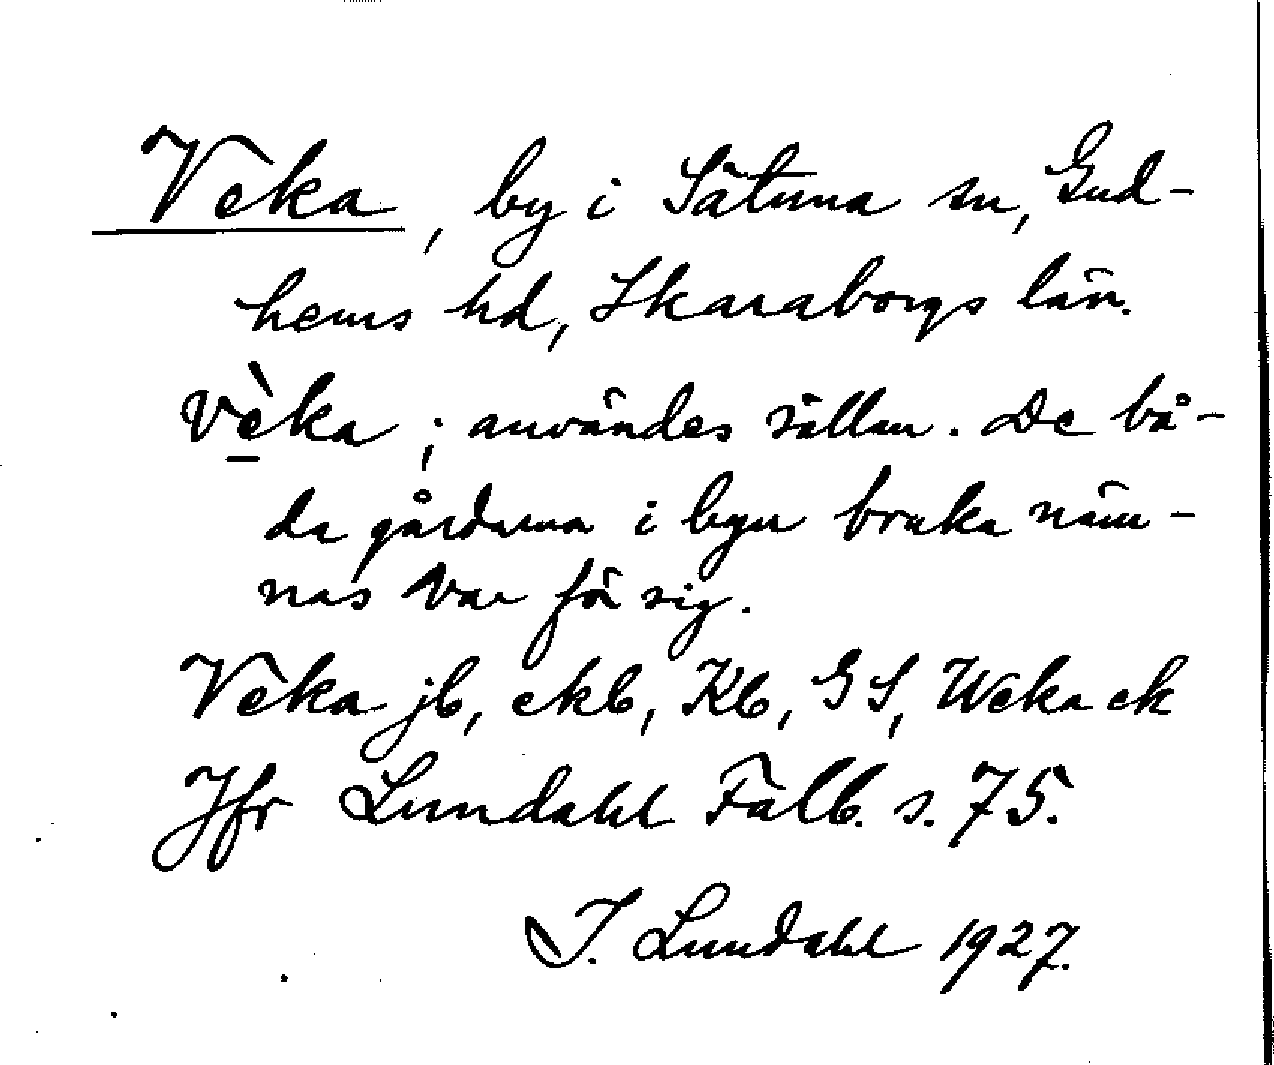 Veka, by i Sätuna sn, Gud-
hems hd, Skaraborgs län.
vèka; användes sällan. De bå-
da gårdarna i byn bruka näm-
nas var för sig.
Veka jb, ekb, Kb, GS, Weka ek
Jfr Lundahl Falb. s. 75.
I. Lundahl 1927.